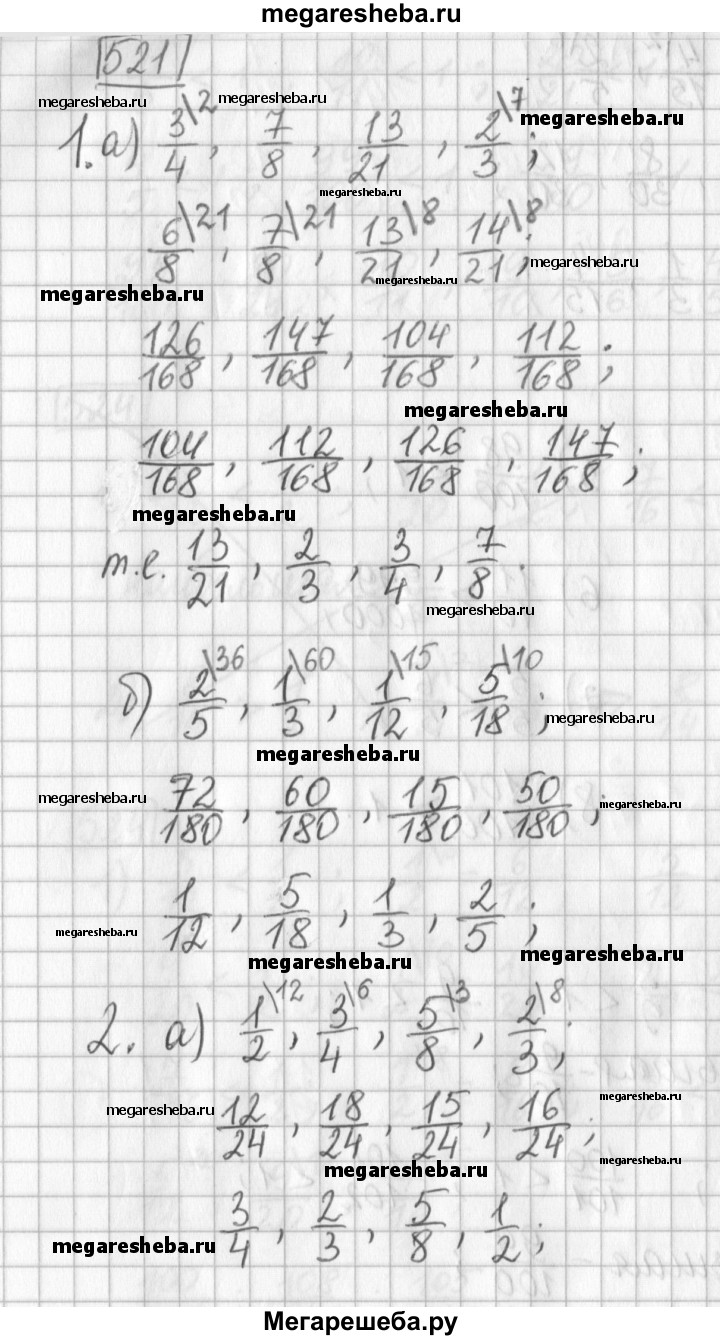 megaresheba.ru
521
megaresheba.ru megaresheba.ru
1. а) 3/4\2, 7/8, 13/21, 2/3\7; megaresheba.ru
megaresheba.ru
6/8\21, 7/8\21, 13/21\8, 14/21\8; megaresheba.ru
megaresheba.ru megaresheba.ru
126/168, 147/168, 104/168, 112/168;
megaresheba.ru
104/168, 112/168, 126/168, 147/168;
megaresheba.ru
т.е. 13/21, 2/3, 3/4, 7/8.
megaresheba.ru
б) 2/5\36, 1/3\60, 1/12\15, 5/18\10; megaresheba.ru
megaresheba.ru
megaresheba.ru 72/180, 60/180, 15/180, 50/180; megaresheba.ru
1/12, 5/18, 1/3, 2/5;
megaresheba.ru megaresheba.ru megaresheba.ru
2. а) 1/2\12, 3/4\6, 5/8\3, 2/3\8;
megaresheba.ru 12/24, 18/24, 15/24, 16/24; megaresheba.ru
megaresheba.ru megaresheba.ru
3/4, 2/3, 5/8, 1/2;
megaresheba.ru
Мегарешеба.ру